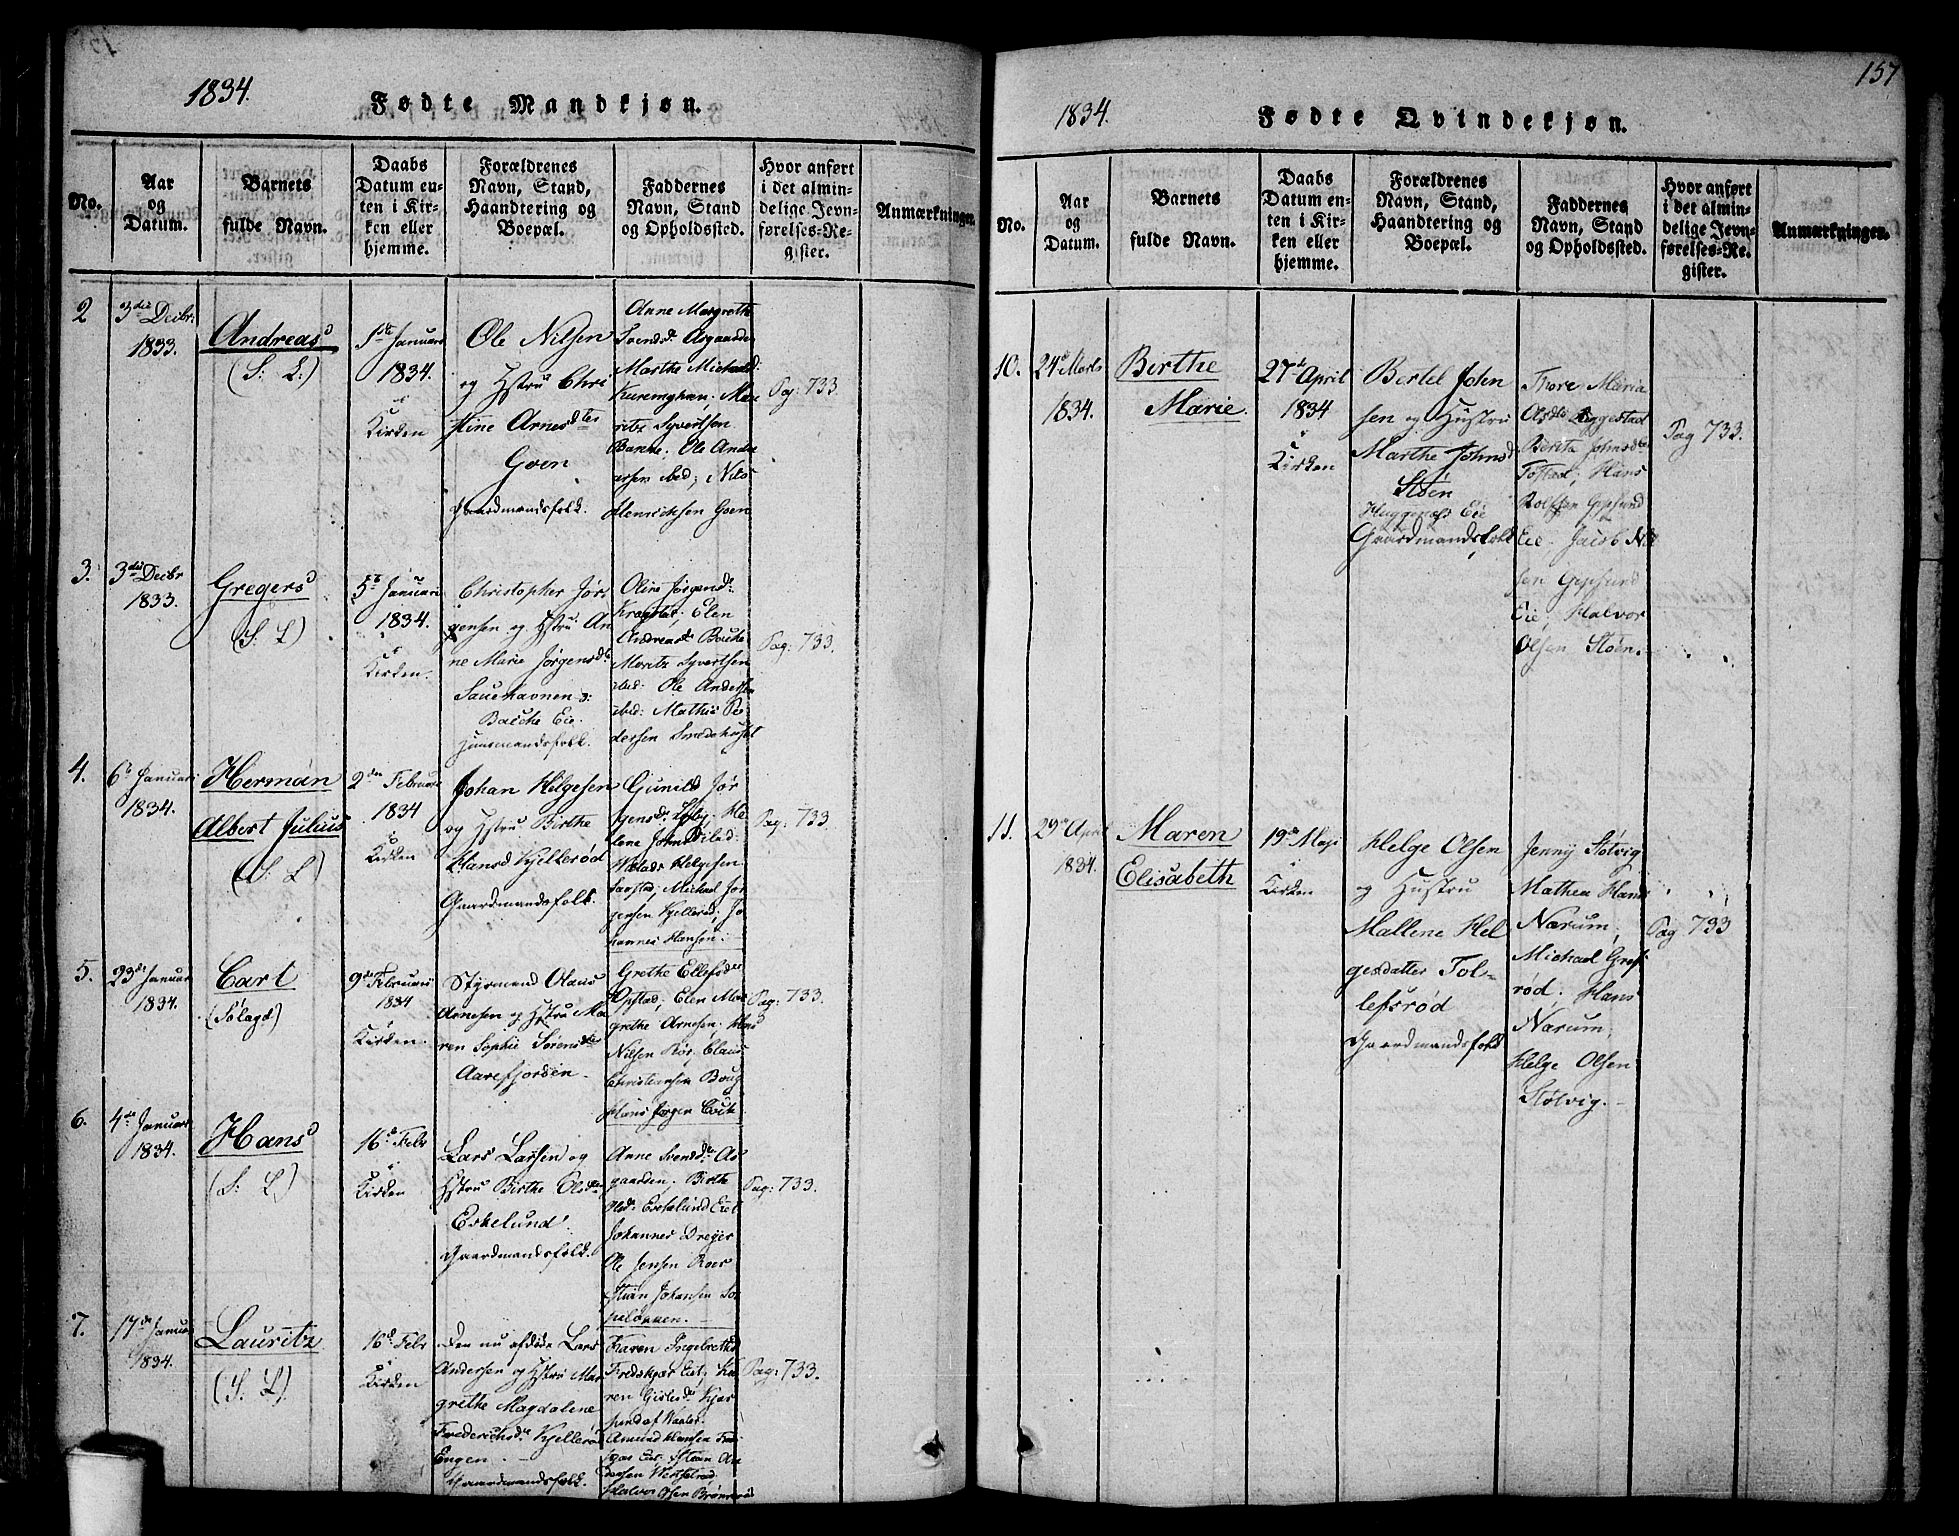 1834.
Fødte Mandkjøn.
No.
Aar
og
Datum.
Barnets
fulde Navn.
Daabs
Datum en-
ten i Kir-
ken eller
hjemme.
Forældrenes
Navn, Stand,
Haandtering og
Boepæl.
Faddernes
Navn, Stand
og Opholdssted.
Hvor anført
i det almin-
delige Jevn-
førelses-Re-
gister.
Anmærkninger.
2
3die Decbr:
1833.
Andreas
(S: L:)
1ste Januari
1834.
i
Kirken
Ole Nilsen
og Hstru Chri
stine Arnesdtr
Goen
Gaardmandsfolk.
Anne Margreth
Svensd: Aasgaarden
Marthe Michaelsd:
Kureenghan; Mau
ritz Syvertsen
Bakke; Ole Ander
sen ibid; Nils
Henrichsen Goen
Pag: 733.
3.
3die Decbr
1833.
Gregers
(S: L)
5te Januari
1834.
i
Kirken.
Christopher Jør
gensen og Hstru An
ne Marie Jørgensdtr
Sauehavnen
Bakke Eie.
Huusmandsfolk.
Oline Jørgensd:
Elen
Andreasd: Bakke
Moritz Syvertsen
ibid: Ole Andersen
ibid: Mathis Pe
dersen Smedehuset
Pag: 733.
4.
6te Januari
1834.
Herman
Albert Julius
(S: L)
2den Februar
1834
i
Kirken
Johan Helgesen
og Hstru Birthe
Hansd Kjellerød
Gaardmandsfolk.
Gunild Jør
gensd: He
lene Johnsd
Helgesen
Michael Jør
gensen Kjellerød; Jo
hannes Hansen:
Pag: 733.
5.
23de Januar
1834.
Carl
(Sølagd)
9de Februari
1834
Kirken.
Styrmand Olaus
Arnesen og Hstru Ma
ren Sophie Sørensdtr
Aarefjorden.
Grethe Ellefsdtr
Opstad; Elen Mar
grethe Arnesen; Hans
Nilsen Rør, Claus
Christiansen Boug
Hans Jørgen
Pag: 733.
6.
4de Januar
1834.
Hans
(S: L)
16de Febr
i
Kirken
Lars Larsen og
Hstru Birthe Olsdtr
Eskelund
Gaardmandsfolk.
Anne Svensd: As
gaarden; Birthe
Olsd: Eskelund Eie
Johannes Dreyer
Ole Jensen Roer
Stian Johansen So
peløkken.
Pag: 733.
7.
17de Januar
1834.
Lauritz
(S: L)
16de Febr
i
Kirken
Den nu afdøde Lars
Andersen og Hstru Mar
grethe Magdalene
Frederichsd: Kjellerød
Engen.
Gaardmandsfolk.
Karen Ingebrethsd
Eie; Ka
ren Gislesd: Kjær
Amund Hansen
Eie; Stian An
dersen
Halvor Olsen
Pag: 733.
157
1834.
Fødte Qvindekjøn.
No.
Aar
og
Datum.
Barnets
fulde Navn.
Daabs
Datum en-
ten i Kir-
ken eller
hjemme.
Forældrenes
Navn, Stand,
Haandtering og
Boepæl.
Faddernes
Navn, Stand
og Opholdssted.
Hvor anført
i det almin-
delige Jevn-
førelses-Re-
gister.
Anmærkninger.
10.
24de Marts
1834.
Birthe
Marie.
27de April
1834
i
Kirken
Bertel John
sen og Hustru
Marthe Johnsd
Støen
Huggenæs Eie
Gaardmandsfolk
Thore Maria
Olsdtr Eggestad
Berita Johnsdtr
Tofstad; Hans
Rolfsen Gipsund
Eie; Jacob Nil
sen Gipsund
Eie; Halvor
Olsen Støen.
Pag 733.
11.
29de April
1834.
Maren
Elisabeth
19de Maji
i
Kirken
Helge Olsen
og Hustru
Mallene Hel
gesdatter Tol-
lefsrød
Gaardmandsfolk
Jenny Støtvig
Mathea Hans
Narum;
Michael Gref-
rød; Hans
Narum;
Helge Olsen
Støtvig.
Pag 733